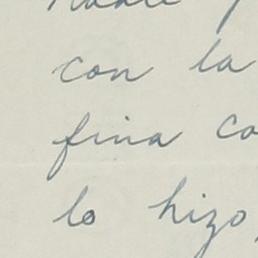 con la
fina co
lo hizo,